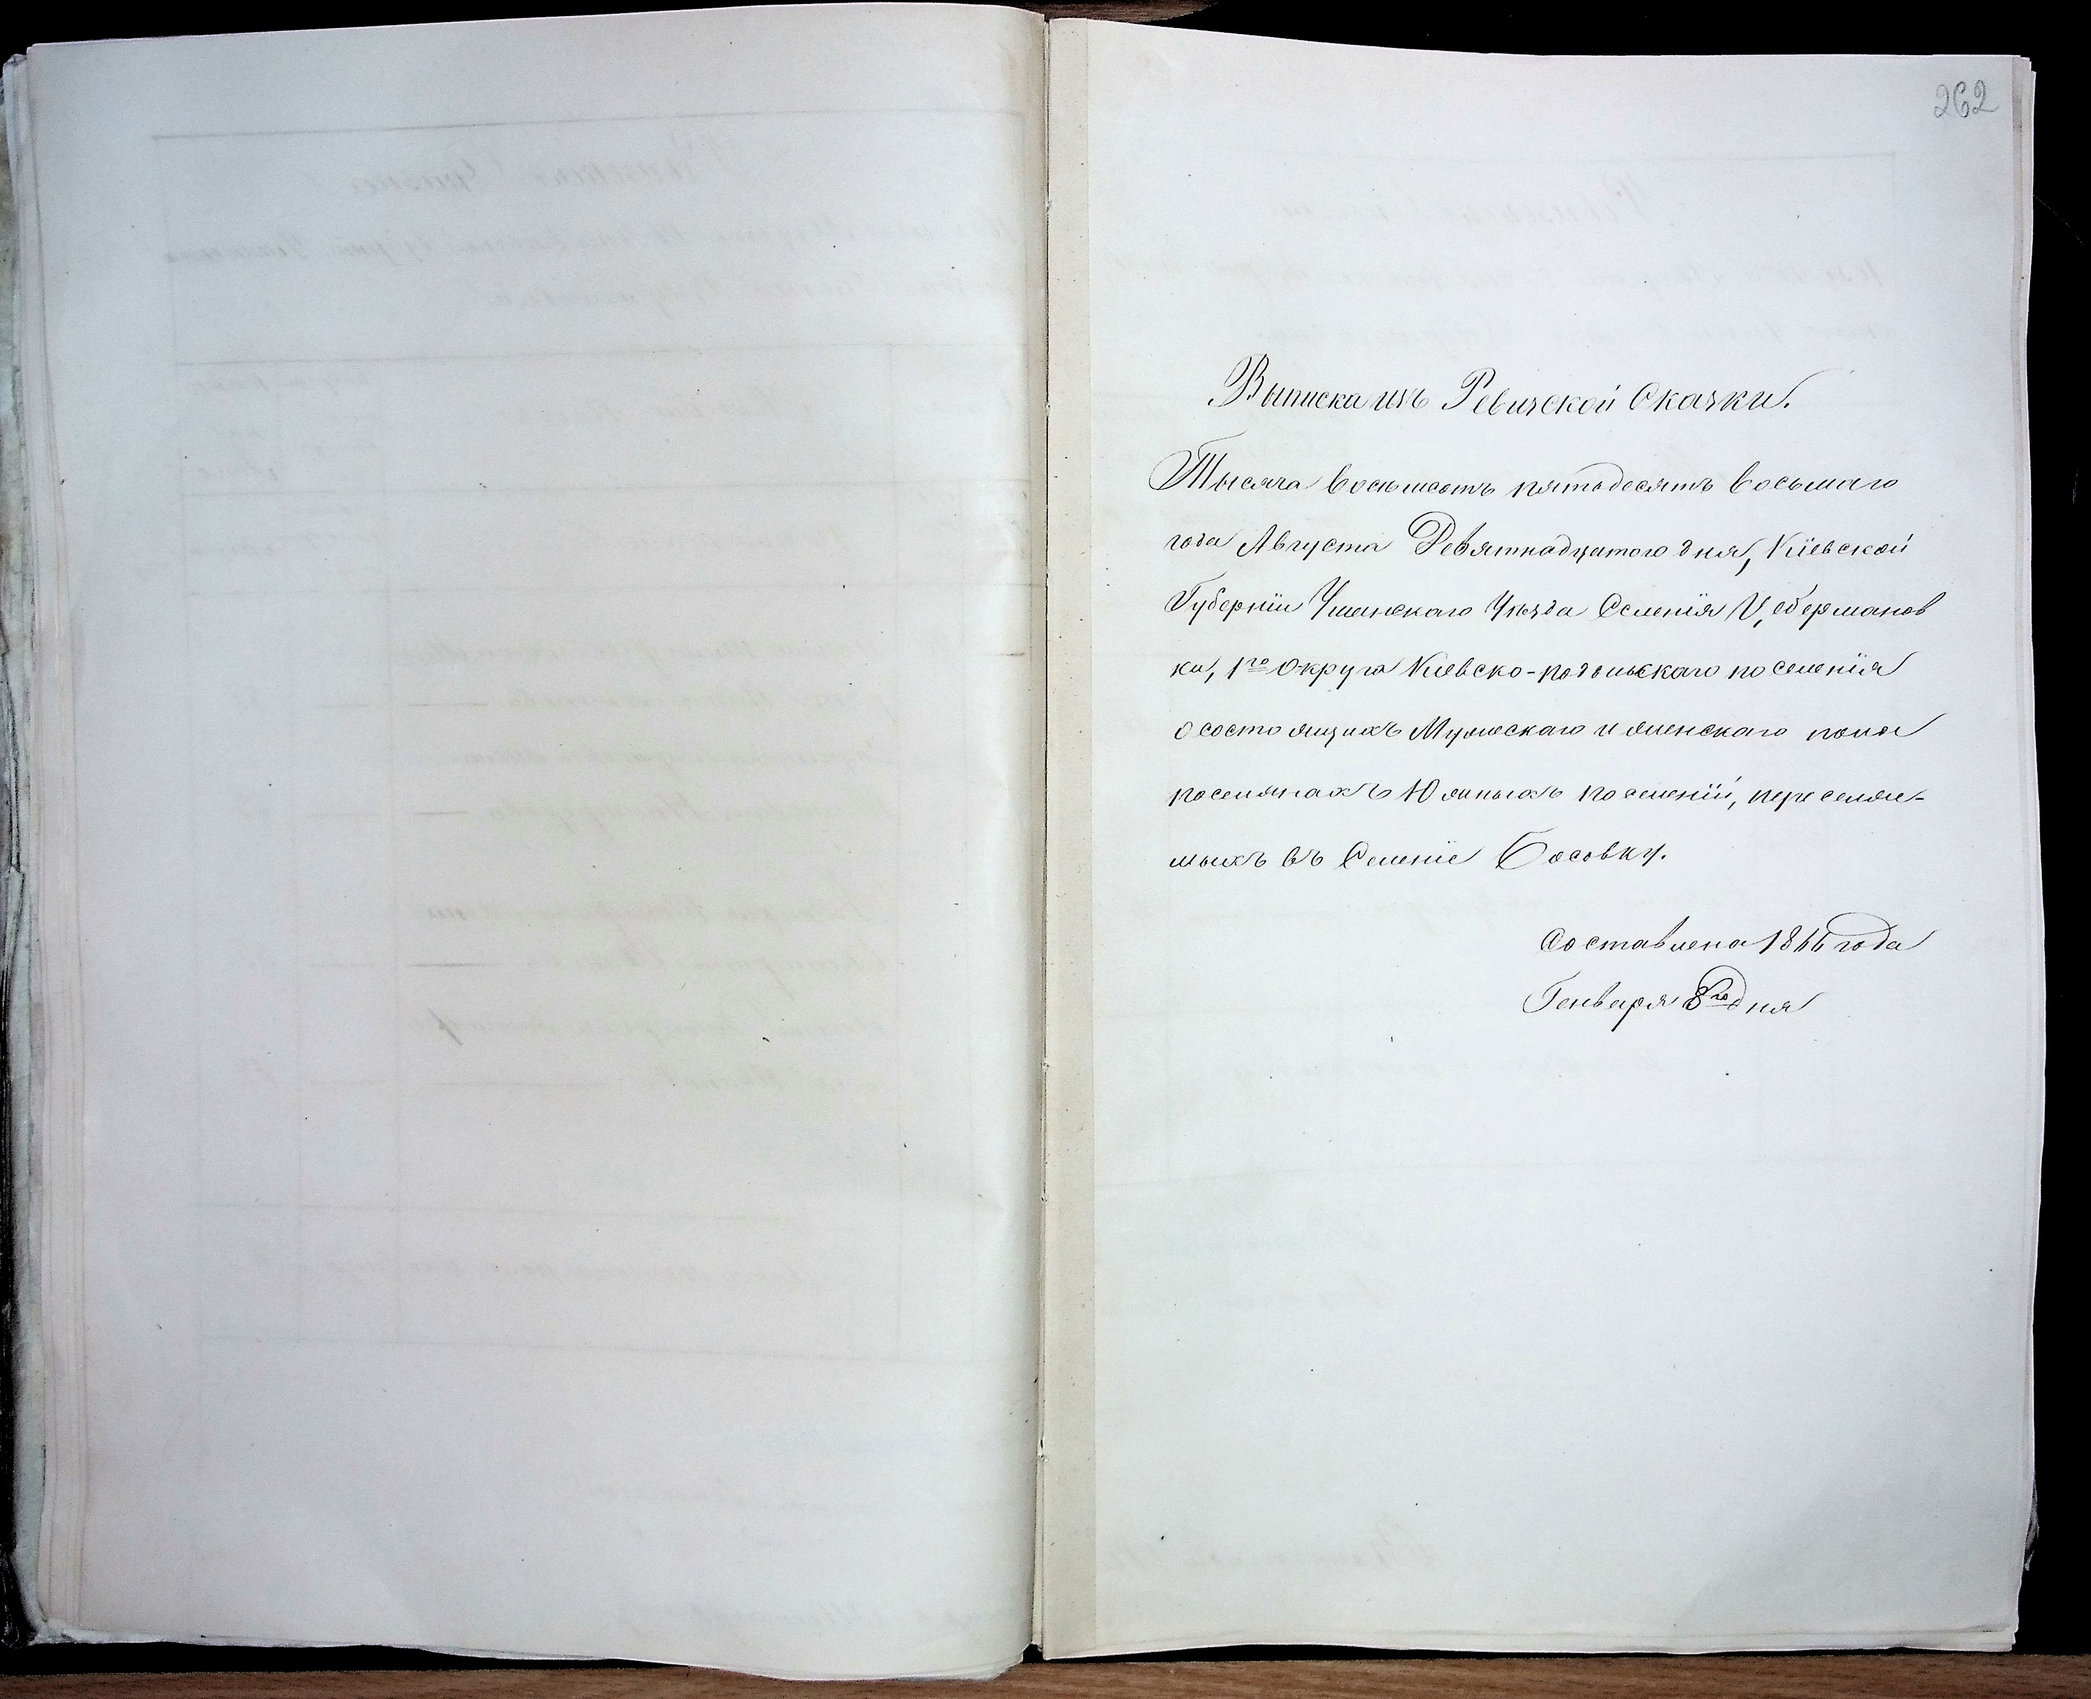 262
Выписка изъ Ревизской Сказки.
Тысяча восемсотъ пятьдесятъ восьмаго
года Августа Девятнадцатого дня, Кіевской
Губерніи Уманскаго Уѣзда Селенія Цеберманов
ки, 1го Округа Кіевско-подольскаго поселенія
о состоящихъ Мужескаго и женскаго пола
поселянахъ Южныхъ поселеній, переселяе-
мыхъ въ Селеніе Босовку.
Составлена 1866 года
Генваря 8го дня